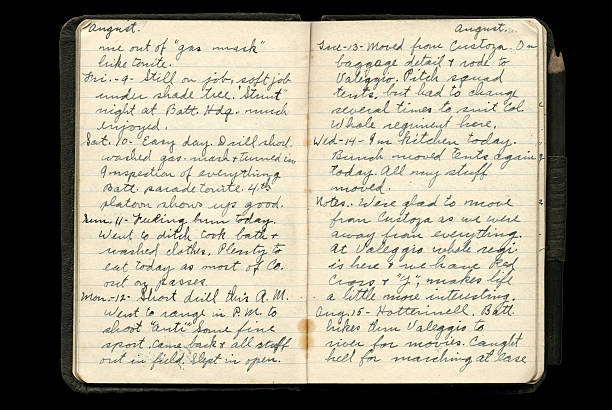 August.
me out of "gas mask"
hike tonite.
Fri.-9- Still on job, soft job
under shade tree. "Stunt"
night at Batt. Hdq. much
enjoyed.
Sat. 10- Easy day. Drill short.
washed gas-mask & turned in
Inspection of everything
Batt. parade tonite. 4th
platoon shows up good.
Sun. 11- Feeling bum today.
Went to ditch took bath &
washed clothes. Plenty to
eat today as most of Co.
out on passes.
Mon.-12- Short drill this A.M.
Went to range in P.M. to
shoot "anti" Some fine
sport. Came back & all stuff
out in field. Slept in open.
August.
Tue-13- Moved from Custoza. On
baggage detail & rode to
Valeggio. Pitch squad
tents but had to change
several times to suit Col.
Whole regiment here.
Wed-14- In kitchen today.
Bunch moved tents again
today. All my stuff
moved.
Notes. Were glad to move
from Custoza as we were
away from everything.
At Valeggio whole regi
is here & we have Red
Cross & "Y", makes life
a little more interesting.
Aug. 15- Hotter'n hell. Batt.
hikes thru Valeggio to
river for movies. Caught
hell for marching at ease